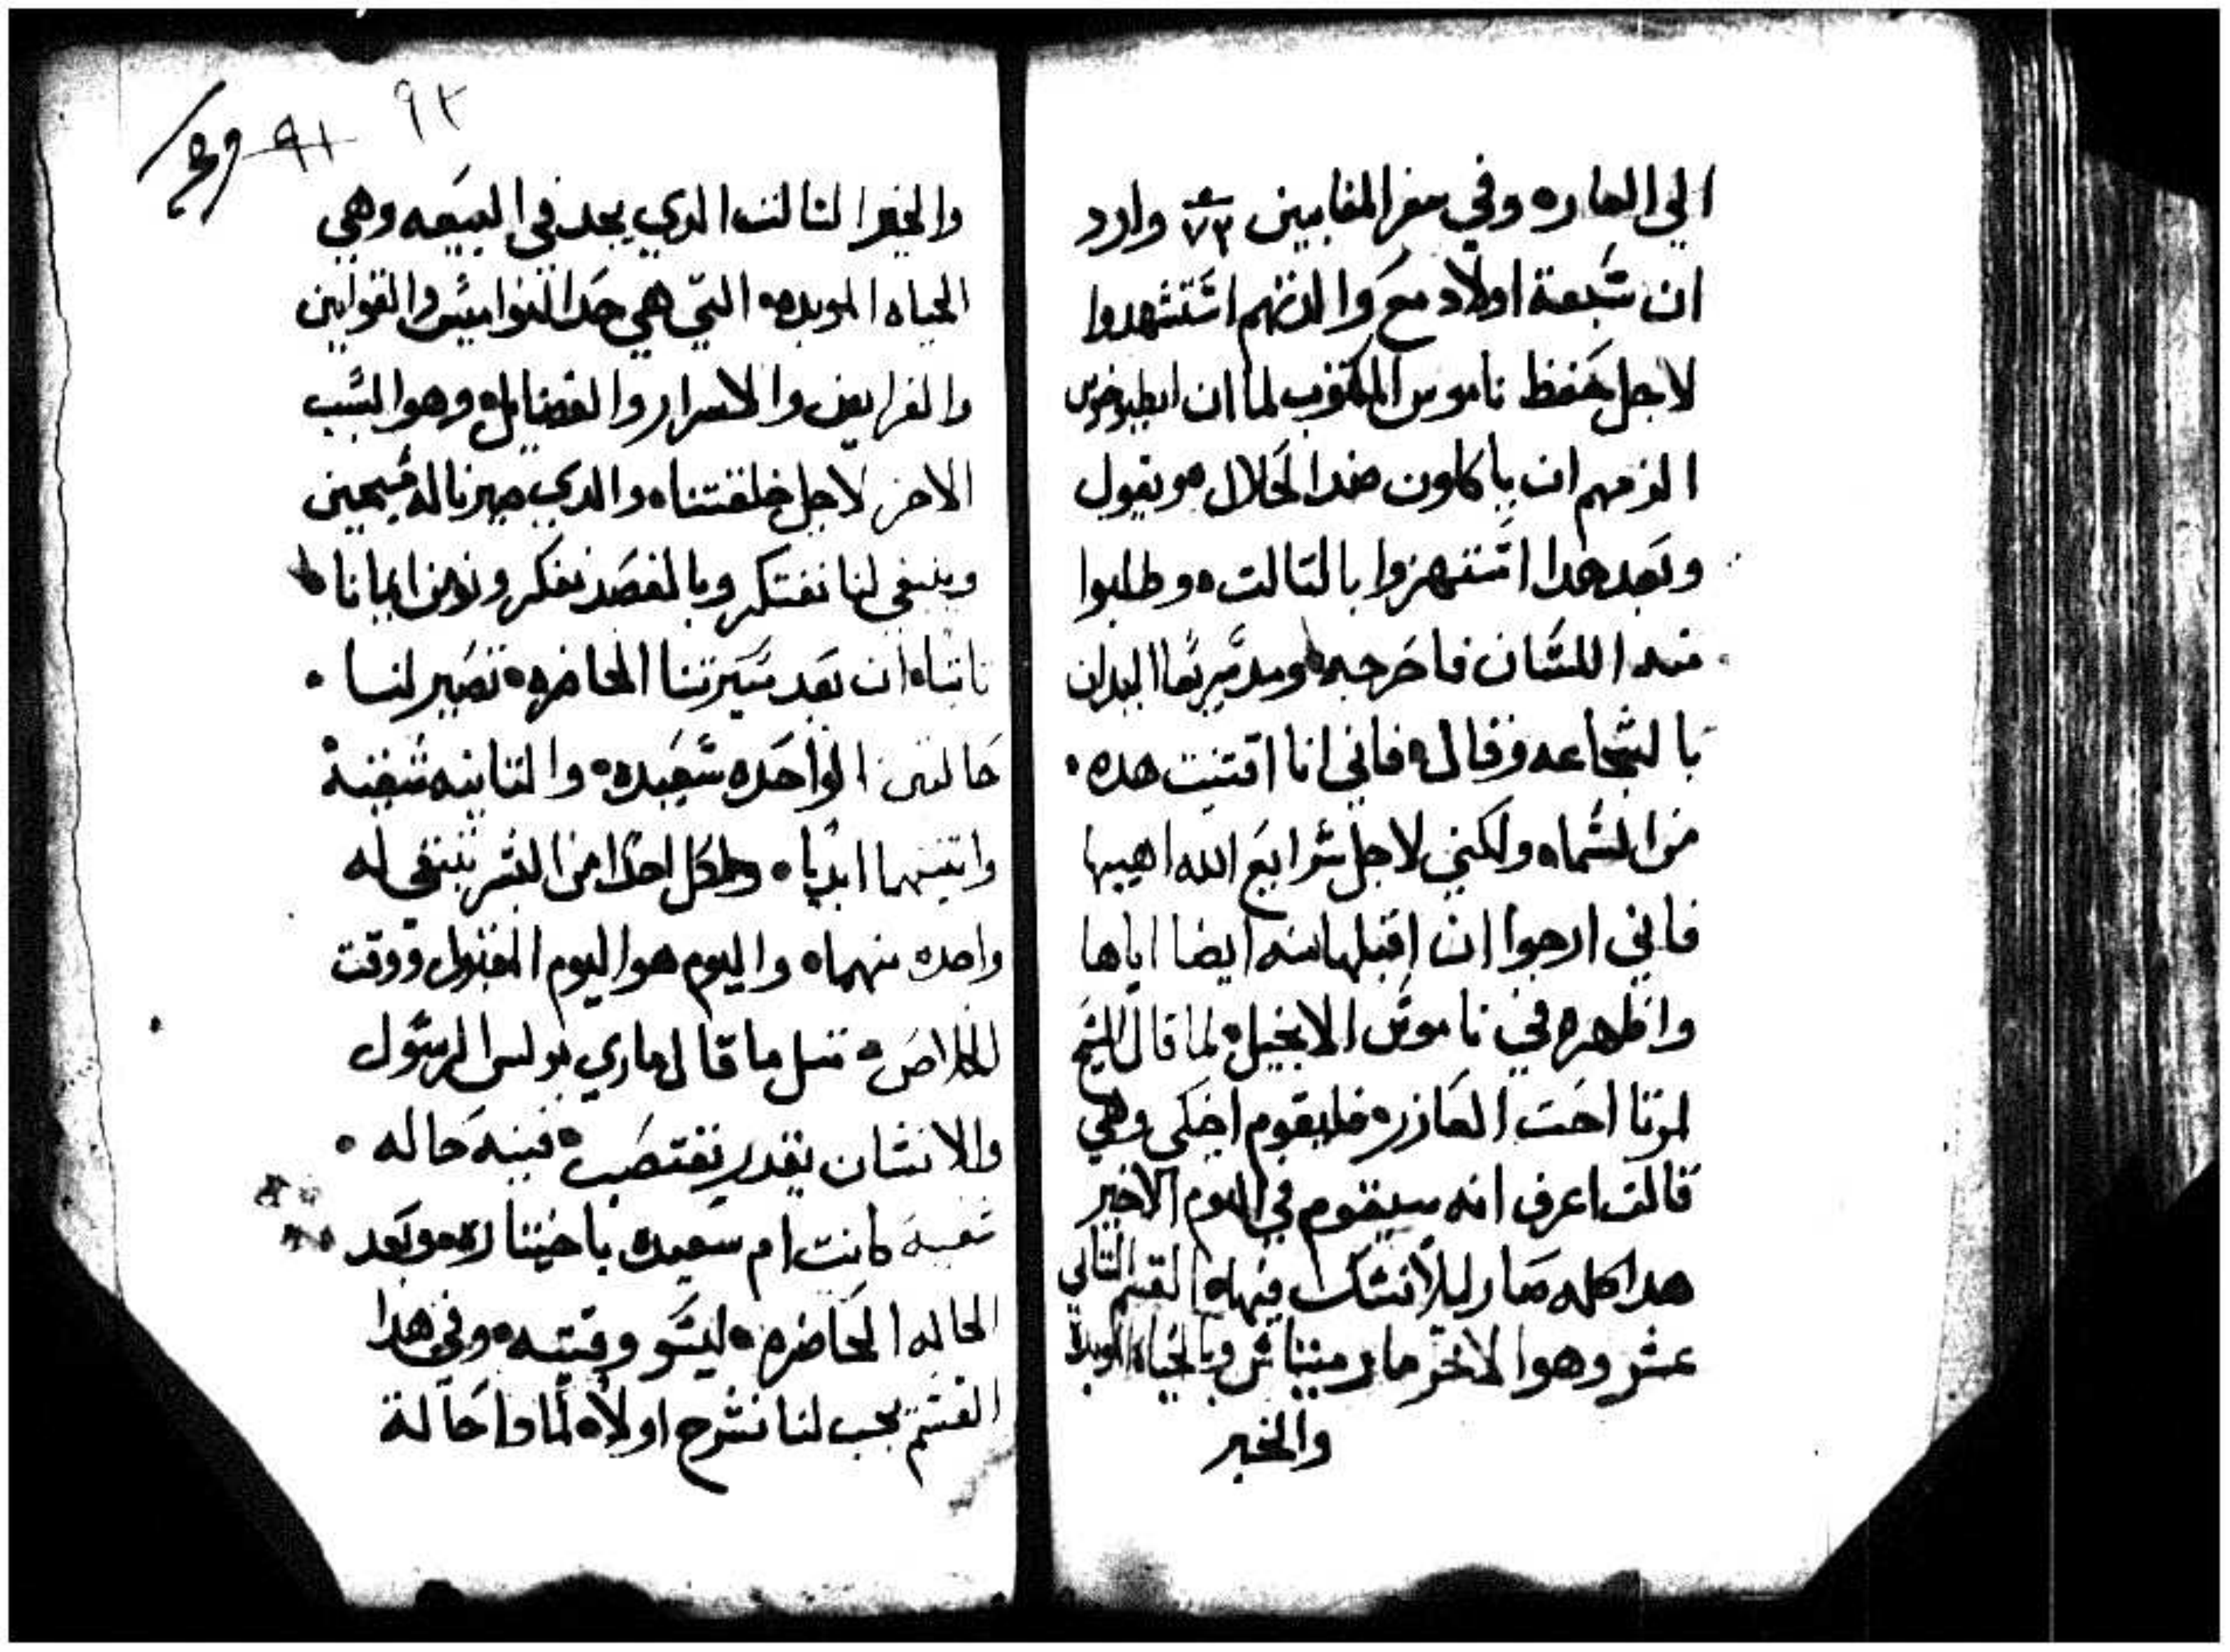 الي العاره وفي سفر المقابيين ٧٣ وارد
ان سبعة اولاد مع والدتهم استشهدوا
لاجل حفظ ناموس المكتوب لما ان انطيوخوس
الزمهم ان ياكلون ضد الحلال ويقول
وبعد هدا استهزوا بالتالت ه وطلبوا
منه اللسان فاخرجه ومد سريعا اليدان
بالشجاعه وقال ه فاني انا اقتنيت هده ه
من السماه ولكني لاجل شرايع الله اهيبها
فاني ارجوا ان اقبلها منه ايضا اياها
واظهره في ناموس الانجيل ه لما قال المسيح
لمرتا احت العازره فليقوم اخكي وهي
قالت اعرف انه سيقوم في اليوم الاخير
هدا كله صار ليلا نشك فيهاه القسم التاني
عشر وهوا الاخر وبالحياه الموبده
والخبر
٩٢
٩١
والخبر التالت الدي يجد في البيعه وهي
الحياه الموبده ه التي هي حد النواميس والقوانين
والفرايض والاسرار والفضايل ه وهوا السبب
الاخر لاجل خلقتناه والدي صيرنا له مسيحيين
وينبغي لنا نفتكر وبالقصد نفكر ونومن ايمانا
تابتاه ان بعد سيرتنا الحاضره ه تصير لنا ه
حالتين الواحده سعيده ه والتانيه شقيه
واتنينهما ابديا ه ولكل احدا من البشر ينبغي له
واحده منهماه واليوم هوا اليوم المقبول ووقت
الخلاص ه متل ما قال ماري بولس الرسول
والانسان يقدر يغتصب ه فينه حاله ه
شقيه كانت ام سعيده باختياره ه وبعد
الحاله الحاضره ه ليس وقتيه ه وفي هدا
القسم يجب لنا نشرح اولاه لمادا حالة